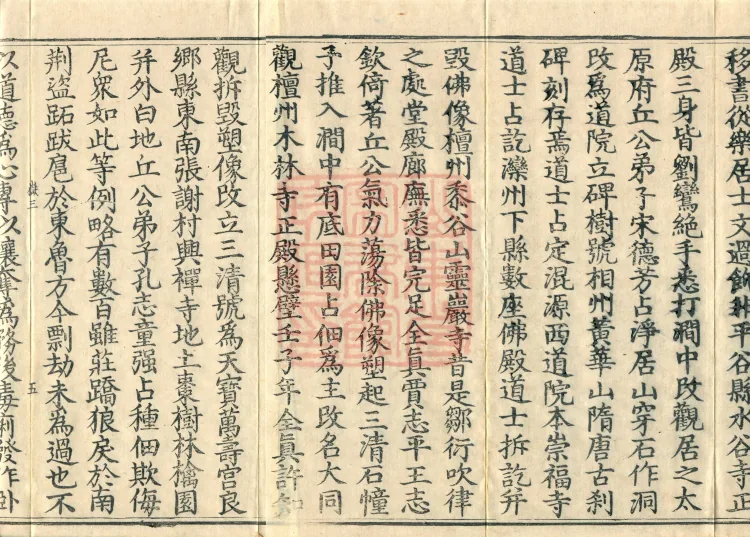 移書從樂居士文過飾非平谷縣水谷寺正
殿三身皆劉鸞絕手悉打澗中改觀居之太
原府丘公弟子宋德芳占淨居山穿石作洞
改爲道院立碑樹號相州黃華山隋唐古刹
碑刻存焉道士占定混源西道院本崇福寺
道士占訖灤州下縣數座佛殿道士拆訖幷
毀佛像檀州黍谷山靈巖寺昔是鄒衍吹律
之處堂殿廊廡悉皆完足全眞賈志平王志
欽倚著丘公氣力蕩除佛像塑起三清石幢
子推入澗中有底田園占佃爲主改名大同
觀檀州木林寺正殿懸壁壬子年全眞許知
觀拆毀塑像改立三清號爲天寶萬壽宮良
鄉縣東南張謝村興禪寺地土棗樹林檎園
幷外白地丘公弟子孔志童强占種佃欺侮
尼衆如此等例略有數百雖莊蹻狼戾於南
荆盜跖跋扈於東魯方今剽劫未爲過也不
蔑三
五
以道德爲心專以襄奪爲務後毒痢發作臥